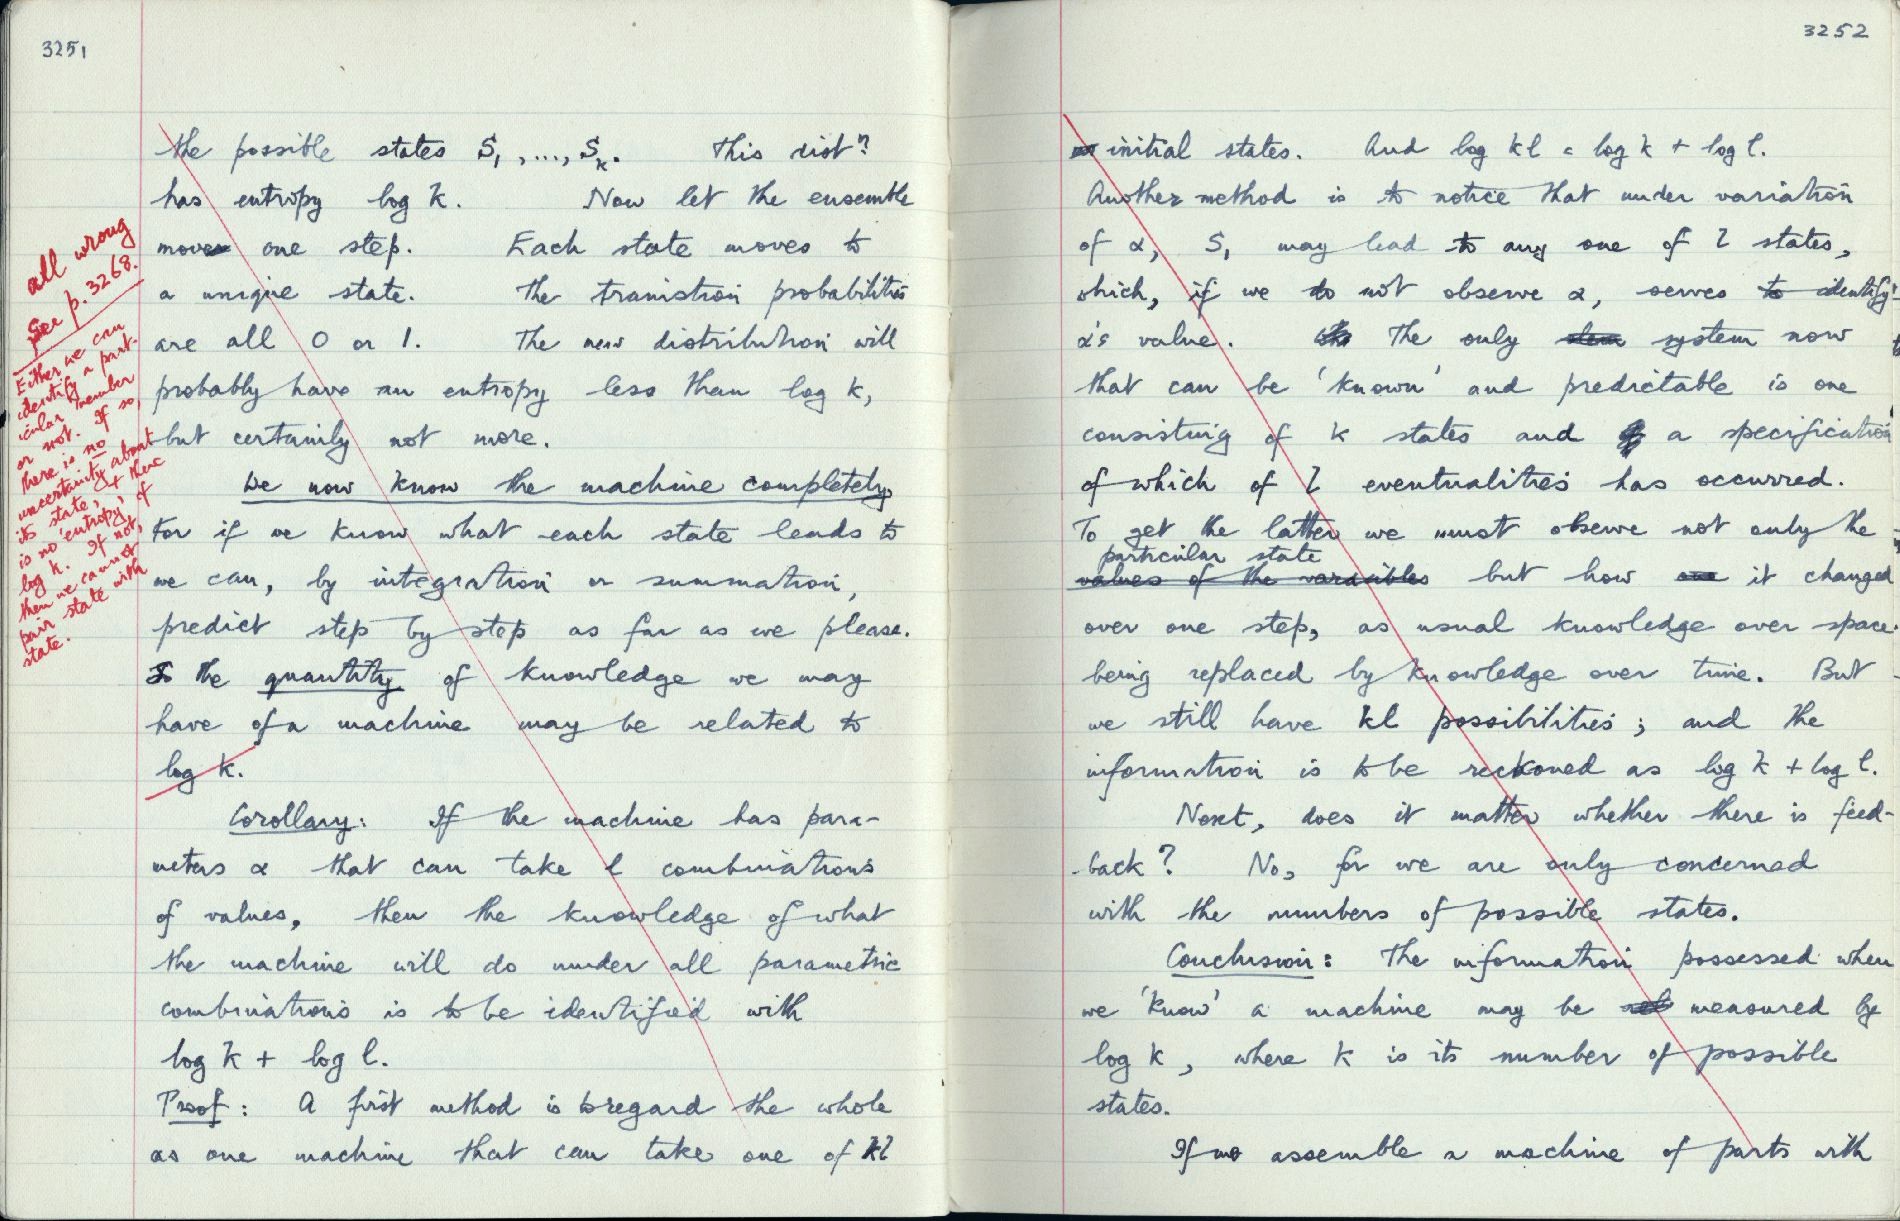 3251
the possible states S1, ..., Sk. This distn
has entropy log k. Now let the ensemble
move one step. Each state moves to
a unique state. The transition probabilities
are all 0 or 1. The new distribution will
probably have an entropy less than log k,
but certainly not more.
We now know the machine completely
For if we know what each state leads to
we can, by integration or summation,
predict step by step as far as we please.
So the quantity of knowledge we may
have of a machine may be related to
log k.
Corollary: If the machine has para-
meters α that can take l combinations
of values, then the knowledge of what
the machine will do under all parametric
combinations is to be identified with
log k + log l.
Proof: A first method is to regard the whole
as one machine that can take one of kl
all wrong
See p. 3268.
Either we can
identify a part-
icular member
or not. If so,
there is no
uncertainty about
its state, & there
is no 'entropy' of
log k. If not,
then we cannot
pair state with
state.
3252
initial states. And log kl = log k + log l.
Another method is to notice that under variation
of α, S1 may lead to any one of l states,
which, if we do not observe α, serves to identify
α's value. The only system now
that can be 'known' and predictable is one
consisting of k states and a specification
of which of l eventualities has occurred.
To get the latter we must observe not only the
particular state
values of the variables but how it changed
over one step, as usual knowledge over space
being replaced by knowledge over time. But
we still have kl possibilities; and the
information is to be reckoned as log k + log l.
Next, does it matter whether there is feed-
back? No, for we are only concerned
with the numbers of possible states.
Conclusion: The information possessed when
we 'know' a machine may be measured by
log k, where k is its number of possible
states.
If we assemble a machine of parts with